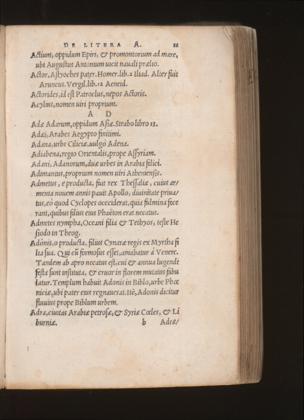 DE LITERA A.
Actium, oppidum Epiri, & promontorium ad mare,
ubi Augustus Antonium vicit navali prælio.
Actor, Astyoches pater. Homer. lib. 2 Iliad. Alter fuit
Aruncus. Vergil. lib. 12 Aeneid.
Actorides, id est Patroclus, nepos Actoris.
Acylus, nomen viri proprium.
A D
Adæ Adarum, oppidum Asiæ. Strabo libro 13.
Adæi, Arabes Aegypto finitimi.
Adana, urbs Ciliciæ, vulgò Adena.
Adiabena, regio Orientalis, prope Assyriam.
Adani, Adanorum, duæ urbes in Arabia felici.
Admantus, proprium nomen viri Atheniensis.
Admetus, e producta, fuit rex Thessaliæ, cuius ar-
menta novem annis pavit Apollo, divinitate priva/
tus, eò quod Cyclopes occiderat, quia fulmina fece
rant, quibus filius eius Phaëton erat necatus.
Admetes nympha, Oceani filia & Tethyos, teste He
siodo in Theog.
Adonis, o producta, filius Cynaræ regis ex Myrrha fi
lia sua. Qui cùm formosus esset, amabatur à Venere.
Tandem ab apro necatus est, cui & annua lugendi
festa sunt instituta, & cruor in florem mutatus fabu
latur. Templum habuit Adonis in Biblo, urbe Phœ
niciæ, ubi pater eius regnaverat. Itē, Adonis dicitur
fluvius prope Biblum urbem.
Adra, civitas Arabiæ petrosæ, & Syriæ Cœles, & Li
burniæ. b Adra/